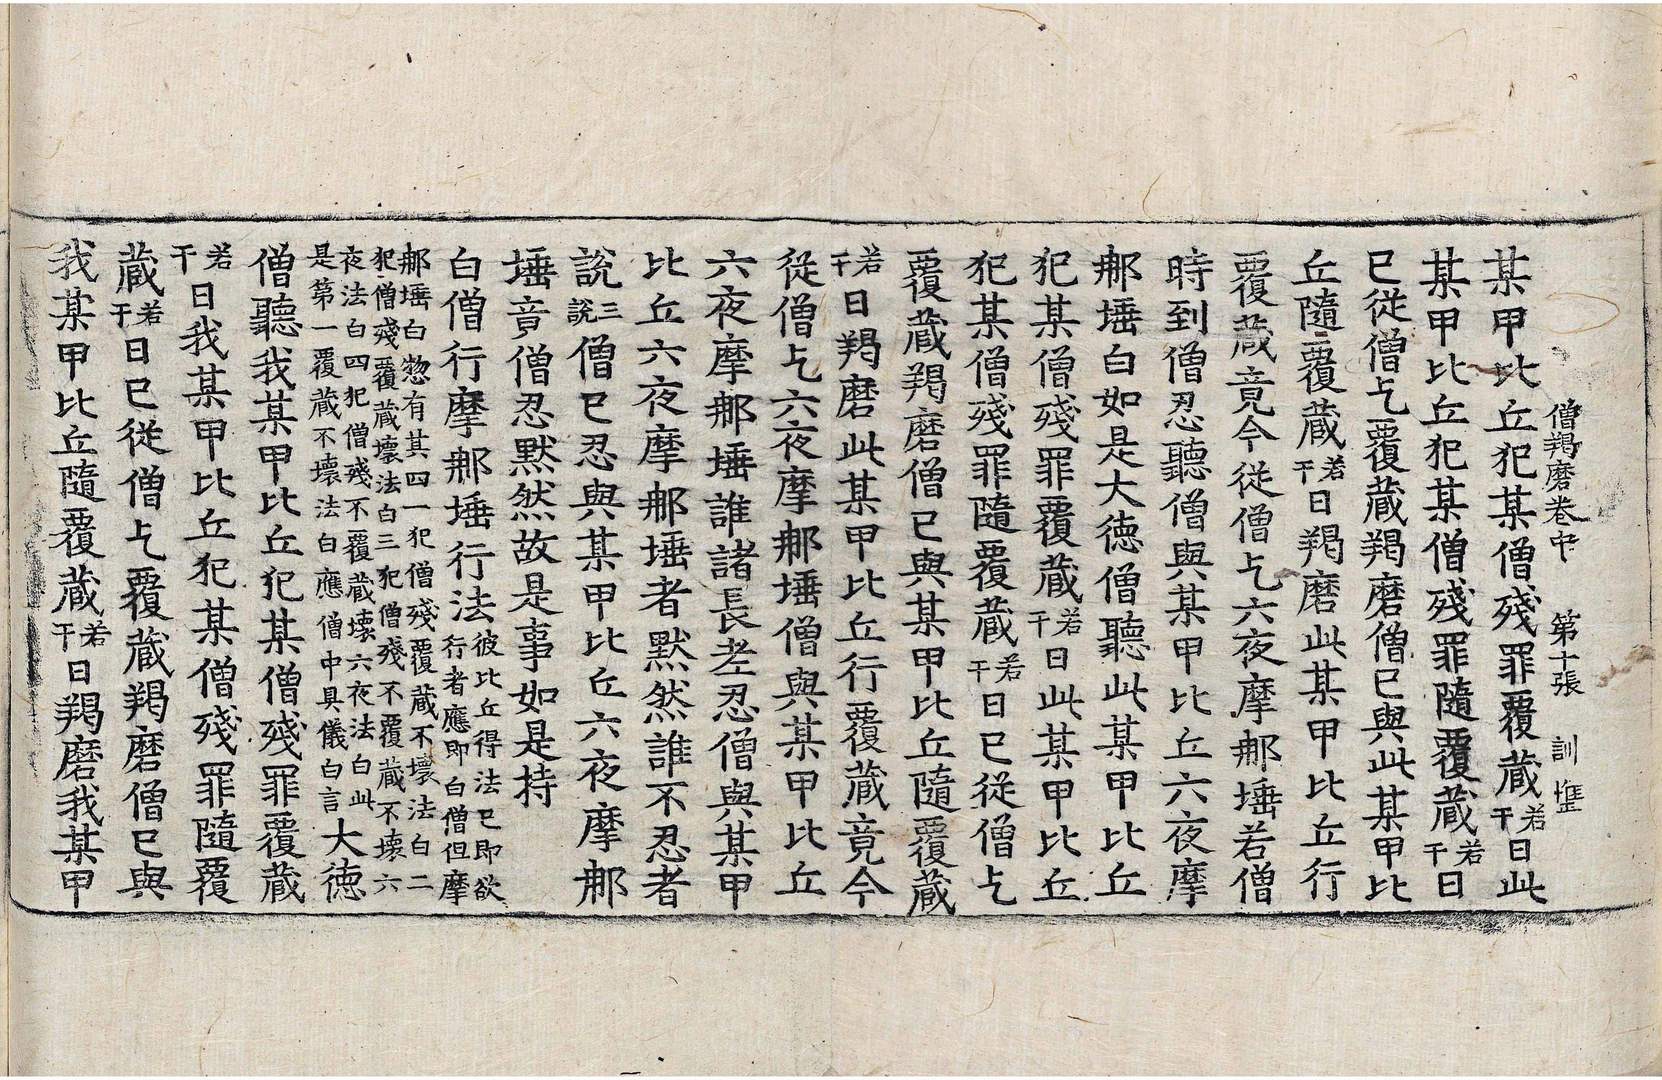 僧羯磨卷中 第十張 訓
某甲比丘犯某僧殘罪覆蔵若干日此
某甲比丘犯某僧殘罪隨覆蔵若干日
已從僧乞覆蔵羯磨僧已與此某甲比
丘隨覆蔵若干日羯磨此某甲比丘行
覆蔵竟今從僧乞六夜摩那埵若僧
時到僧忍聽僧與某甲比丘六夜摩
那埵白如是大德僧聽此某甲比丘
犯某僧殘罪覆蔵若干日此某甲比丘
犯某僧殘罪隨覆蔵若干日已從僧乞
覆蔵羯磨僧已與某甲比丘隨覆蔵
若干日羯磨此某甲比丘行覆蔵竟今
從僧乞六夜摩那埵僧與某甲比丘
六夜摩那埵誰諸長老忍僧與某甲
比丘六夜摩那埵者默然誰不忍者
說三說僧已忍與某甲比丘六夜摩那
埵竟僧忍默然故是事如是持
白僧行摩那埵行法彼比丘得法已即欲行者應即白僧但摩
那埵白惣有其四一犯僧殘覆蔵不壞法白二
犯僧殘覆蔵壞法白三犯僧殘不覆蔵不壞六
夜法白四犯僧殘不覆蔵壞六夜法白此
是第一覆蔵不壞法白應僧中具儀白言大德
僧聽我某甲比丘犯某僧殘罪覆蔵
若干日我某甲比丘犯某僧殘罪隨覆
蔵若干日已從僧乞覆蔵羯磨僧已與
我某甲比丘隨覆蔵若干日羯磨我某甲